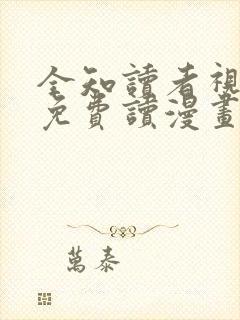 全知讀者視
免費讀漫畫
萬泰